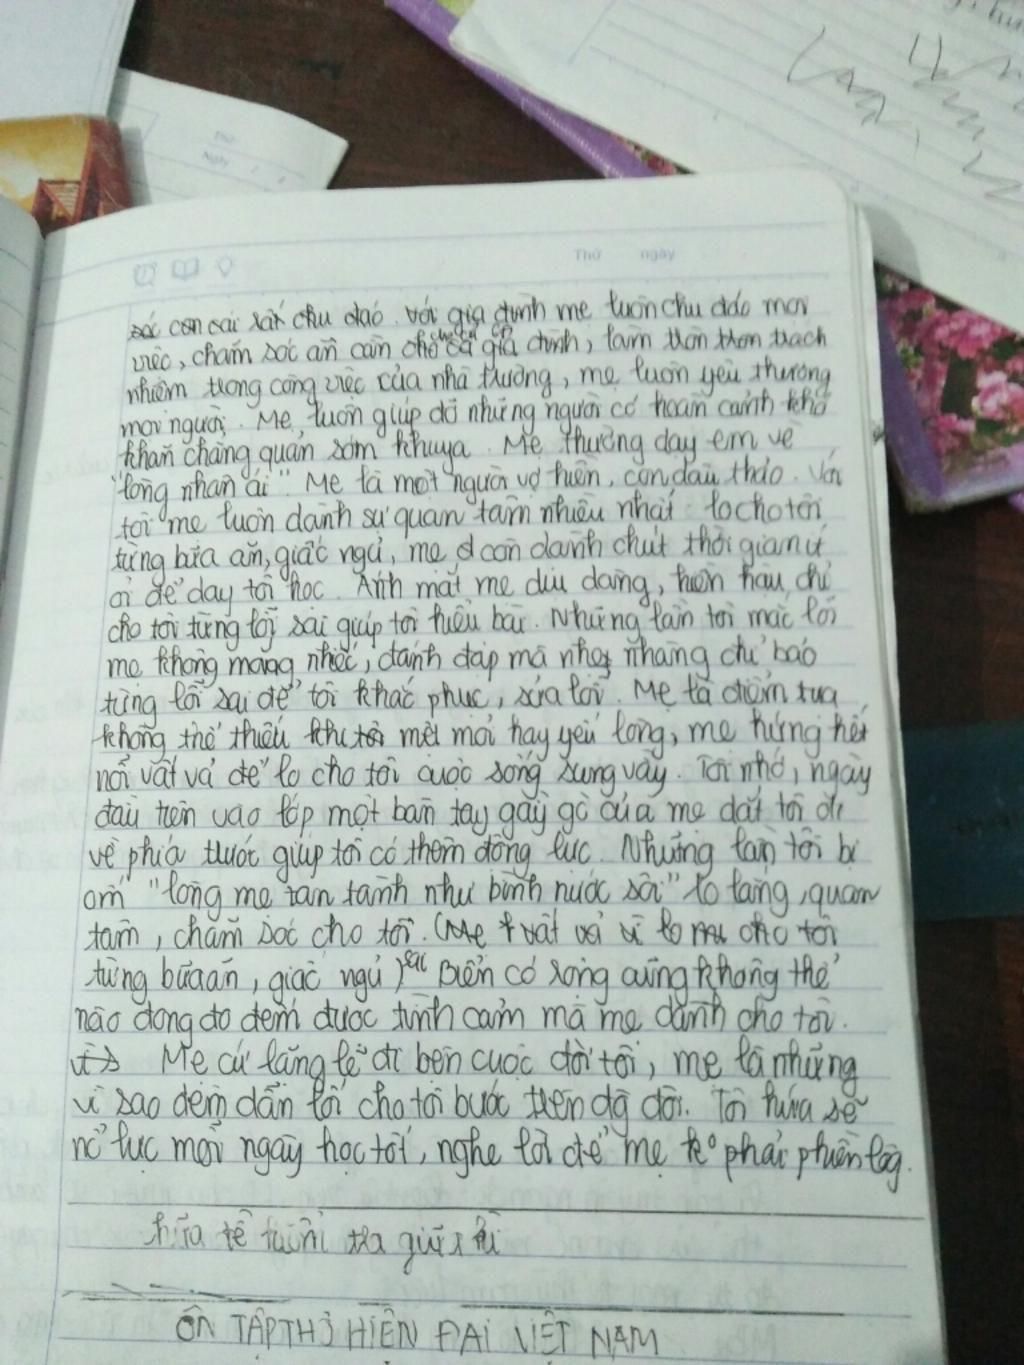 Thứ
Ngày
Thứ ngày
sóc con cái rất chu đáo. Với gia đình mẹ luôn chu đáo mọi
việc, chăm sóc ăn cần cho cả gia đình, làm tròn trách
nhiệm trong công việc của nhà trường, mẹ luôn yêu thương
mọi người. Mẹ luôn giúp đỡ những người có hoàn cảnh khó
khăn chẳng quản sớm khuya. Mẹ thường dạy em về
"lòng nhân ái". Mẹ là một người vợ hiền, con dâu thảo. Với
tôi mẹ luôn dành sự quan tâm nhiều nhất lo cho tôi
từng bữa ăn, giấc ngủ, mẹ còn dành chút thời gian ít
ỏi để dạy tôi học. Ánh mắt mẹ dịu dàng, hiền hậu, chỉ
cho tôi từng lỗi sai giúp tôi hiểu bài. Những lần tôi mắc lỗi
mẹ không mắng nhiếc, đánh đập mà nhẹ nhàng chỉ bảo
từng lỗi sai để tôi khắc phục, sửa lỗi. Mẹ là điểm tựa
không thể thiếu khi tôi mệt mỏi hay yếu lòng, mẹ hứng hết
nỗi vất vả để lo cho tôi cuộc sống sung vầy. Tôi nhớ, ngày
đầu tiên vào lớp một bàn tay gầy gò của mẹ dắt tôi đi
về phía trước giúp tôi có thêm động lực. Những lần tôi bị
ốm "lòng mẹ tan tành như bình nước sôi" lo lắng, quan
tâm, chăm sóc cho tôi. (Mẹ vất vả vì lo cho tôi
từng bữa ăn, giấc ngủ) Biển có rộng cũng không thể
nào đong đo đếm được tình cảm mà mẹ dành cho tôi.
Mẹ cứ lặng lẽ đi bên cuộc đời tôi, mẹ là những
vì sao đêm dẫn lối cho tôi bước trên đg đời. Tôi hứa sẽ
nỗ lực mỗi ngày học tốt, nghe lời để mẹ k° phải phiền lòg.
ÔN TẬP THƠ HIỆN ĐẠI VIỆT NAM